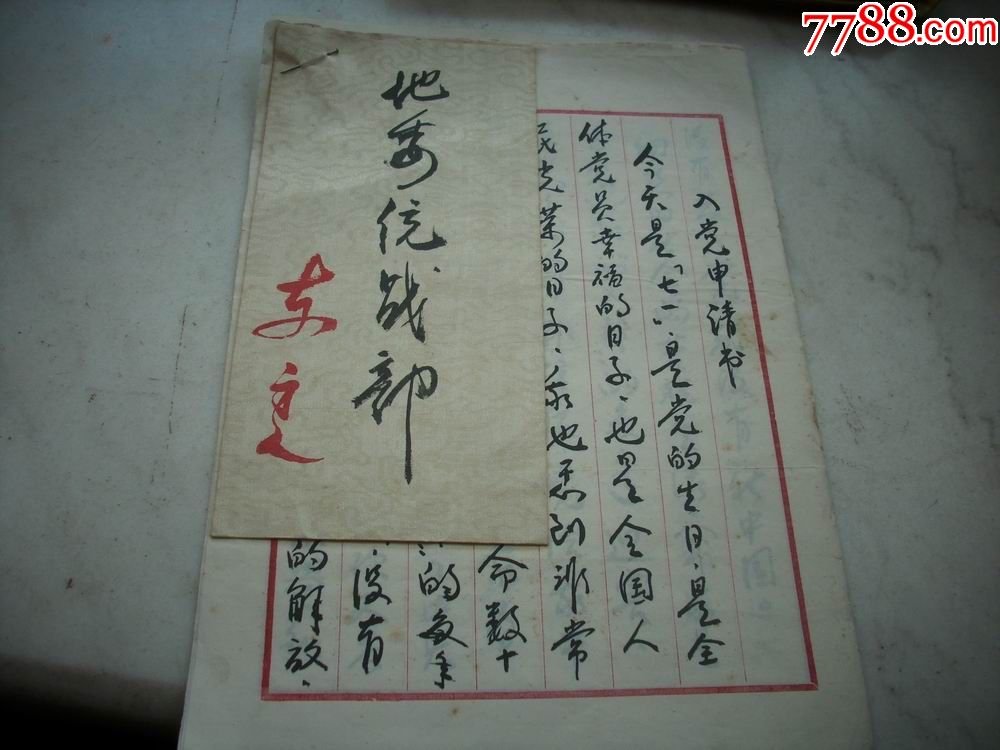 7788.com
地委统战部
入党申请书
今天是「七一」、是党的生日、是全
体党员幸福的日子、也是全国人
民光荣的日子、我也感到非常
命数十
的
没有
的解放、